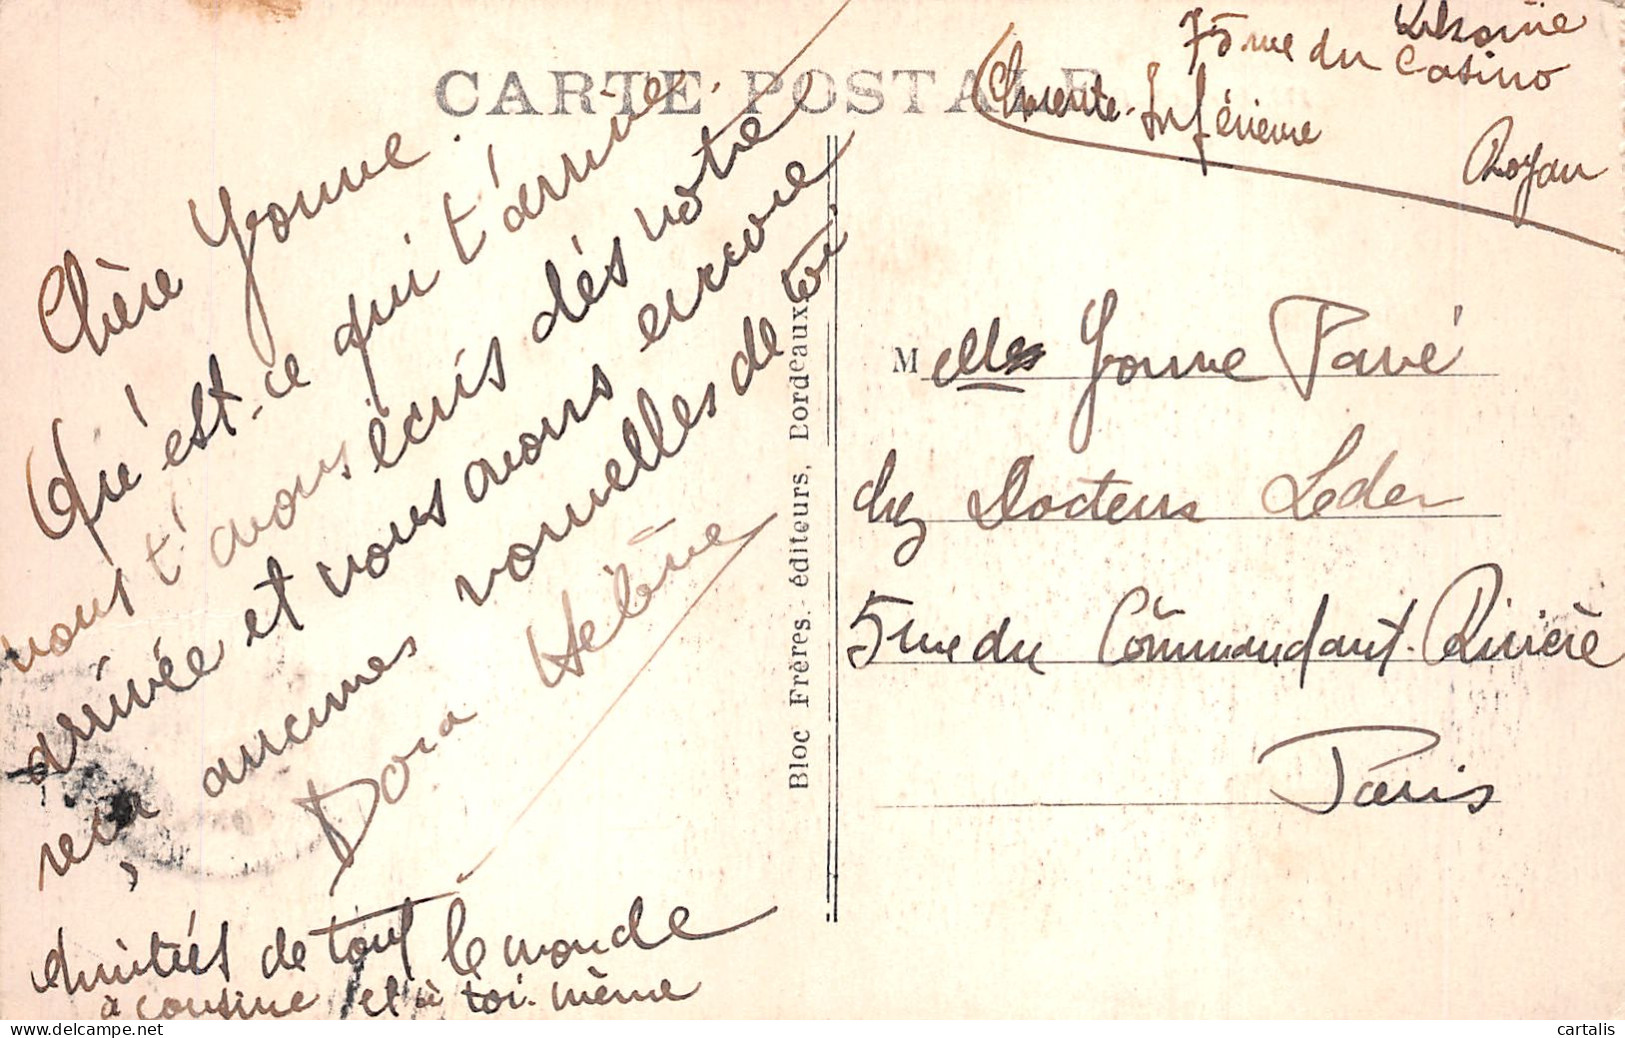 CARTE POSTALE
75 rue du Casino
Charente-Inférieure
Royan
Chère Yvonne.
Qu'est-ce qui t'arrive.
nous t'avons écris dés votre
arrivée et nous avons encore
reçu aucunes nouvelles de toi.
Dora Hélène
Amitiés de tout le monde
à cousine et à toi-même
Bloc Frères, éditeurs, Bordeaux
Melles Yvonne Pavé
chez Docteur Leder
5 rue du Commandant-Rivière
Paris
cartalis